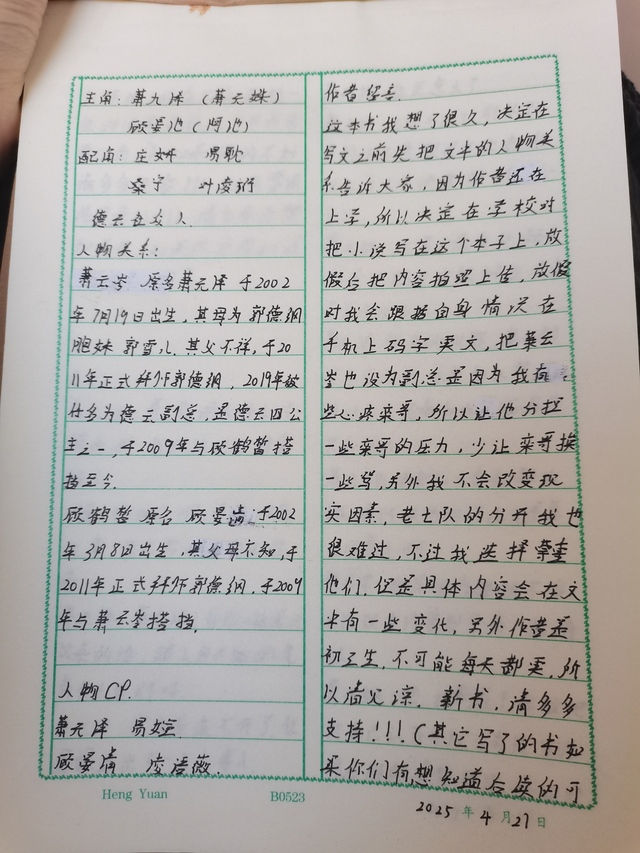 主角：萧九泽（萧元姝）
顾晏池（阿池）
配角：庄妍 易耽
桑宁 叶凌珩
德云社众人
人物关系：
萧云岑 原名萧元泽 于2002
年7月19日出生，其母为郭德纲
胞妹郭雪儿，其父不祥，于20
11年正式拜师郭德纲，2019年被
任务为德云副总，是德云四公
主之一，于2009年与顾鹤哲搭
挡至今。
顾鹤哲 原名 顾晏清，于2002
年3月8日出生，其父母不知，于
2011年正式拜师郭德纲，于2009
年与萧云岑搭挡。
人物CP.
萧元泽 易煊
顾晏清 凌语薇.
作者留言.
这本书我想了很久，决定在
写文之前先把文中的人物关
系告诉大家，因为作者还在
上学，所以决定在学校时
把小说写在这个本子上，放
假后把内容拍照上传，放假
时我会跟据自身情况在
手机上码字更文，把萧云
岑也设为副总是因为我有
些心疼栾哥，所以让他分担
一些栾哥的压力，少让栾哥挨
一些骂，另外我不会改变现
实因素，老七队的分开我也
很难过，不过我选择尊重
他们。但是具体内容会在文
中有一些变化，另外作者是
初三生，不可能每天都更，所
以请见谅。新书，请多多
支持！！！（其它写了的书如
果你们有想知道后续的可
Heng Yuan B0523
2025年4月27日